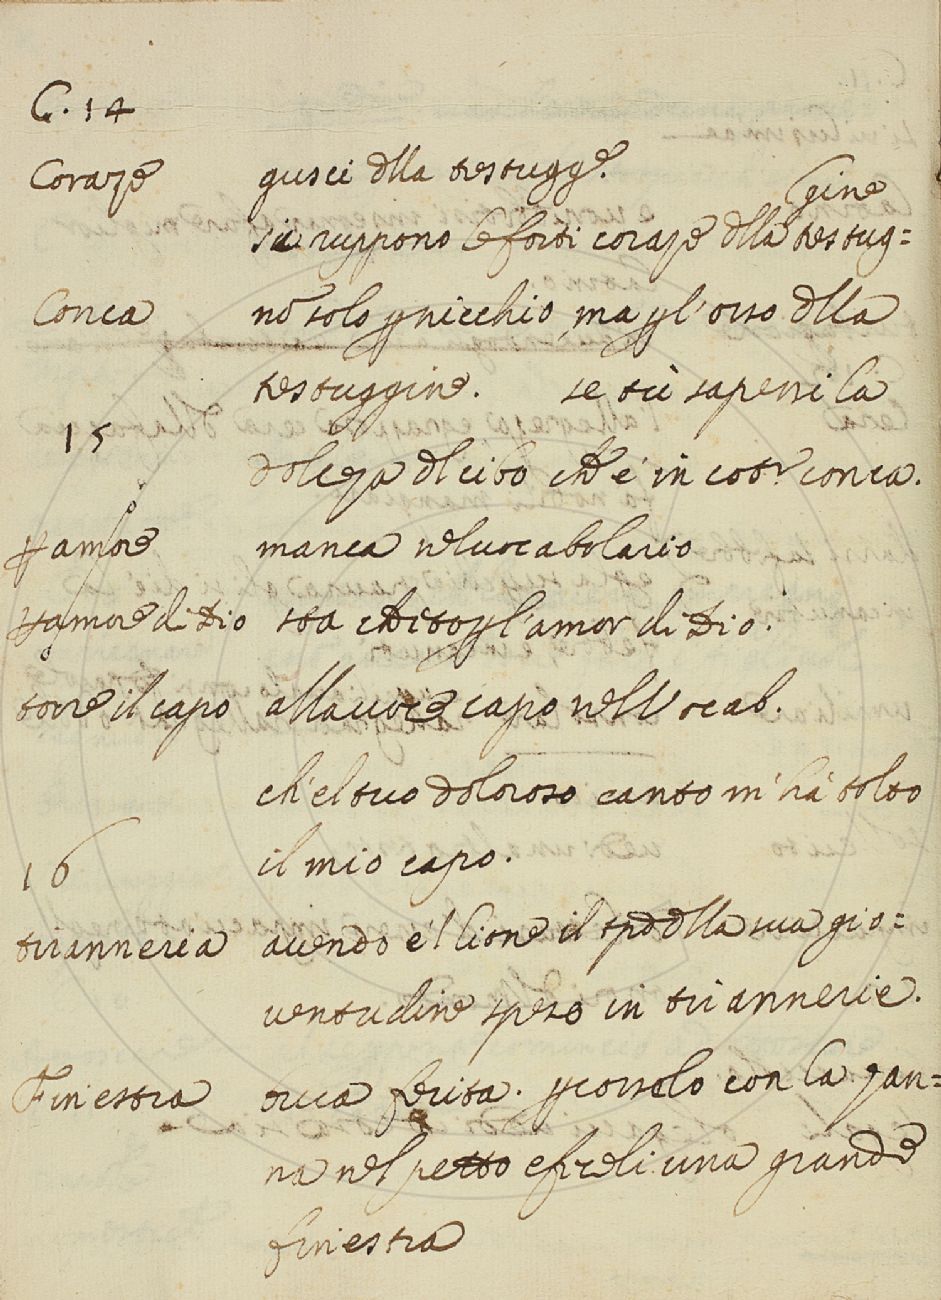 C. 14
Coraze gusci dlla testugge.
gine
si ruppono le forti coraze dlla testug=
Conca nō solo p nicchio ma p l'osso dlla
testuggine. se tù sapessi la
15
dolceza dl cibo che é in cotta conca.
p amore manca nel uocabolario
p amore di Dio sta cheto p l'amor di Dio.
torre il capo alla uoce capo nell Vocab.
ch'el tuo doloroso canto m'há tolto
il mio capo.
16
tirannerìa auendo e'l lione il tpo dlla sua gio=
uentudine speso in tirannerie.
Finestra buca ferita. percossolo con la zan=
na nel petto e feceli una grande
finestra